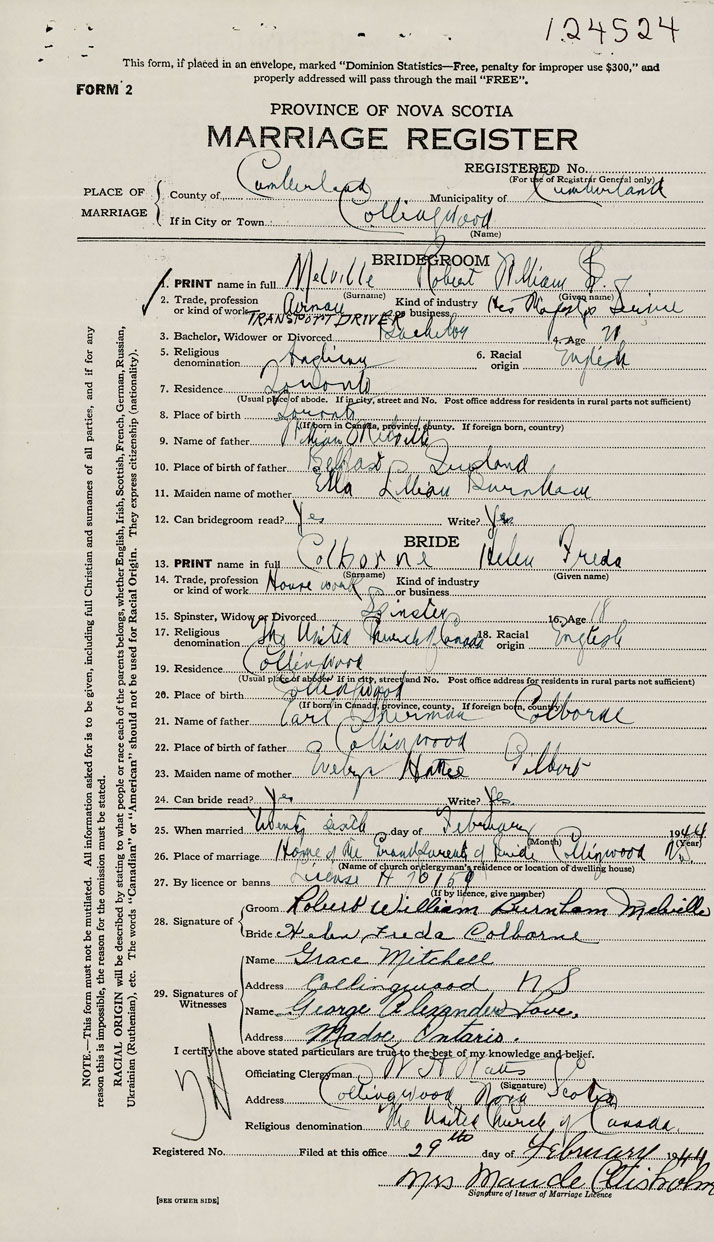 124524
This form, if placed in an envelope, marked "Dominion Statistics—Free, penalty for improper use $300," and
properly addressed will pass through the mail "FREE".
FORM 2
PROVINCE OF NOVA SCOTIA
MARRIAGE REGISTER
REGISTERED No.
(For use of Registrar General only)
PLACE OF MARRIAGE
County of Cumberland Municipality of Cumberland
If in City or Town Collingwood
(Name)
BRIDEGROOM
1. PRINT name in full Melville Robert William
(Surname) (Given name)
2. Trade, profession or kind of work TRANSPORT DRIVER Kind of industry or business His Majesty's Service
3. Bachelor, Widower or Divorced Bachelor 4. Age 21
5. Religious denomination Anglican 6. Racial origin English
7. Residence Toronto
(Usual place of abode. If in city, street and No. Post office address for residents in rural parts not sufficient)
8. Place of birth Toronto
(If born in Canada, province, county. If foreign born, country)
9. Name of father William Melville
10. Place of birth of father Belfast Ireland
11. Maiden name of mother Ella Lillian Burnham
12. Can bridegroom read? Yes Write? Yes
BRIDE
13. PRINT name in full Colborne Helen Freda
(Surname) (Given name)
14. Trade, profession or kind of work House work Kind of industry or business
15. Spinster, Widow or Divorced Spinster 16. Age 18
17. Religious denomination The United Church of Canada 18. Racial origin English
19. Residence Collingwood
(Usual place of abode. If in city, street and No. Post office address for residents in rural parts not sufficient)
20. Place of birth Collingwood
(If born in Canada, province, county. If foreign born, country)
21. Name of father Carl Sherman Colborne
22. Place of birth of father Collingwood
23. Maiden name of mother Evelyn Hattie Gilbert
24. Can bride read? Yes Write? Yes
25. When married Twenty sixth day of February 1944
(Month) (Year)
26. Place of marriage Home of the Grandparents of bride Collingwood N.S.
(Name of church or clergyman's residence or location of dwelling house)
27. By licence or banns License
(If by licence, give number)
28. Signature of
Groom Robert William Burnham Melville
Bride Helen Freda Colborne
29. Signatures of Witnesses
Name Grace Mitchell
Address Collingwood N S
Name George Alexander Love.
Address Madoc, Ontario.
I certify the above stated particulars are true to the best of my knowledge and belief.
Officiating Clergyman W H Watts
(Signature)
Address Collingwood Nova Scotia
Religious denomination The United Church of Canada
Registered No. Filed at this office 29th day of February 1944
Mrs Maude Chisholm
Signature of Issuer of Marriage Licence
[SEE OTHER SIDE]
NOTE.—This form must not be mutilated. All information asked for is to be given, including full Christian and surnames of all parties, and if for any
reason this is impossible, the reason for the omission must be stated.
RACIAL ORIGIN will be described by stating to what people or race each of the parents belongs, whether English, Irish, Scottish, French, German, Russian,
Ukrainian (Ruthenian), etc. The words "Canadian" or "American" should not be used for Racial Origin. They express citizenship (nationality).